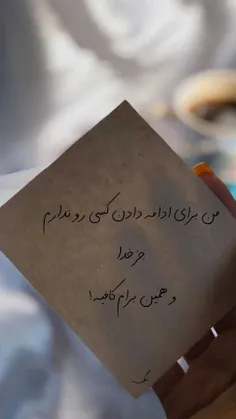 من برای ادامه دادن کسی رو ندارم
جز خدا
و همین برام کافیه!